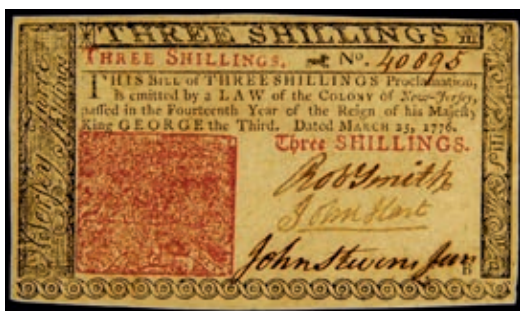 THREE SHILLINGS
THREE SHILLINGS. No. 40895
THIS BILL of THREE SHILLINGS Proclamation,
is emitted by a LAW of the COLONY of New-Jersey,
passed in the Fourteenth Year of the Reign of his Majesty
King GEORGE the Third. Dated MARCH 25, 1776.
Three SHILLINGS.
Robt Smith
John Hart
John Stevens Jun
Jersey
Shillings